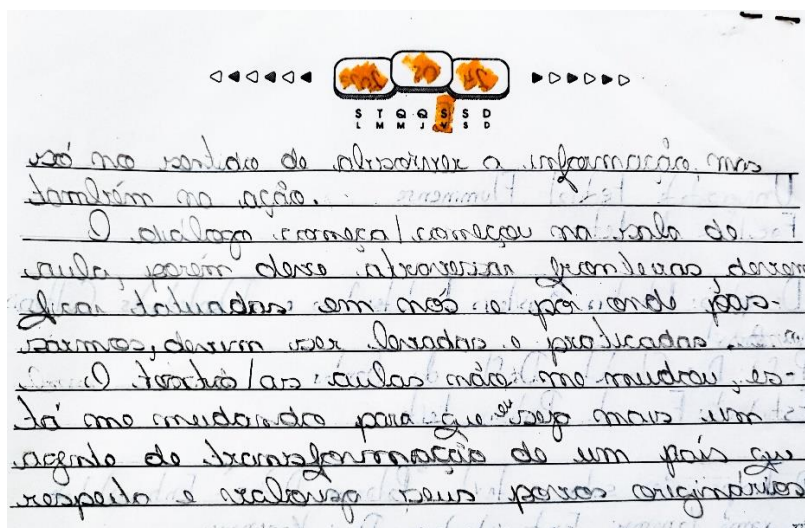 S T Q Q S S D
L M M J V S D
só no sentido de absorver a informação, mas
também na ação.
O diálogo começa/começou na sala de
aula, porém deve atravessar fronteiras devem
ficar tatuadas em nós e por onde pas-
sarmos, devem ser levadas e praticadas.
O texto/as aulas não me mudou, es-
tá me mudando para que eu seja mais um
agente de transformação de um país que
respeita e valoriza seus povos originários